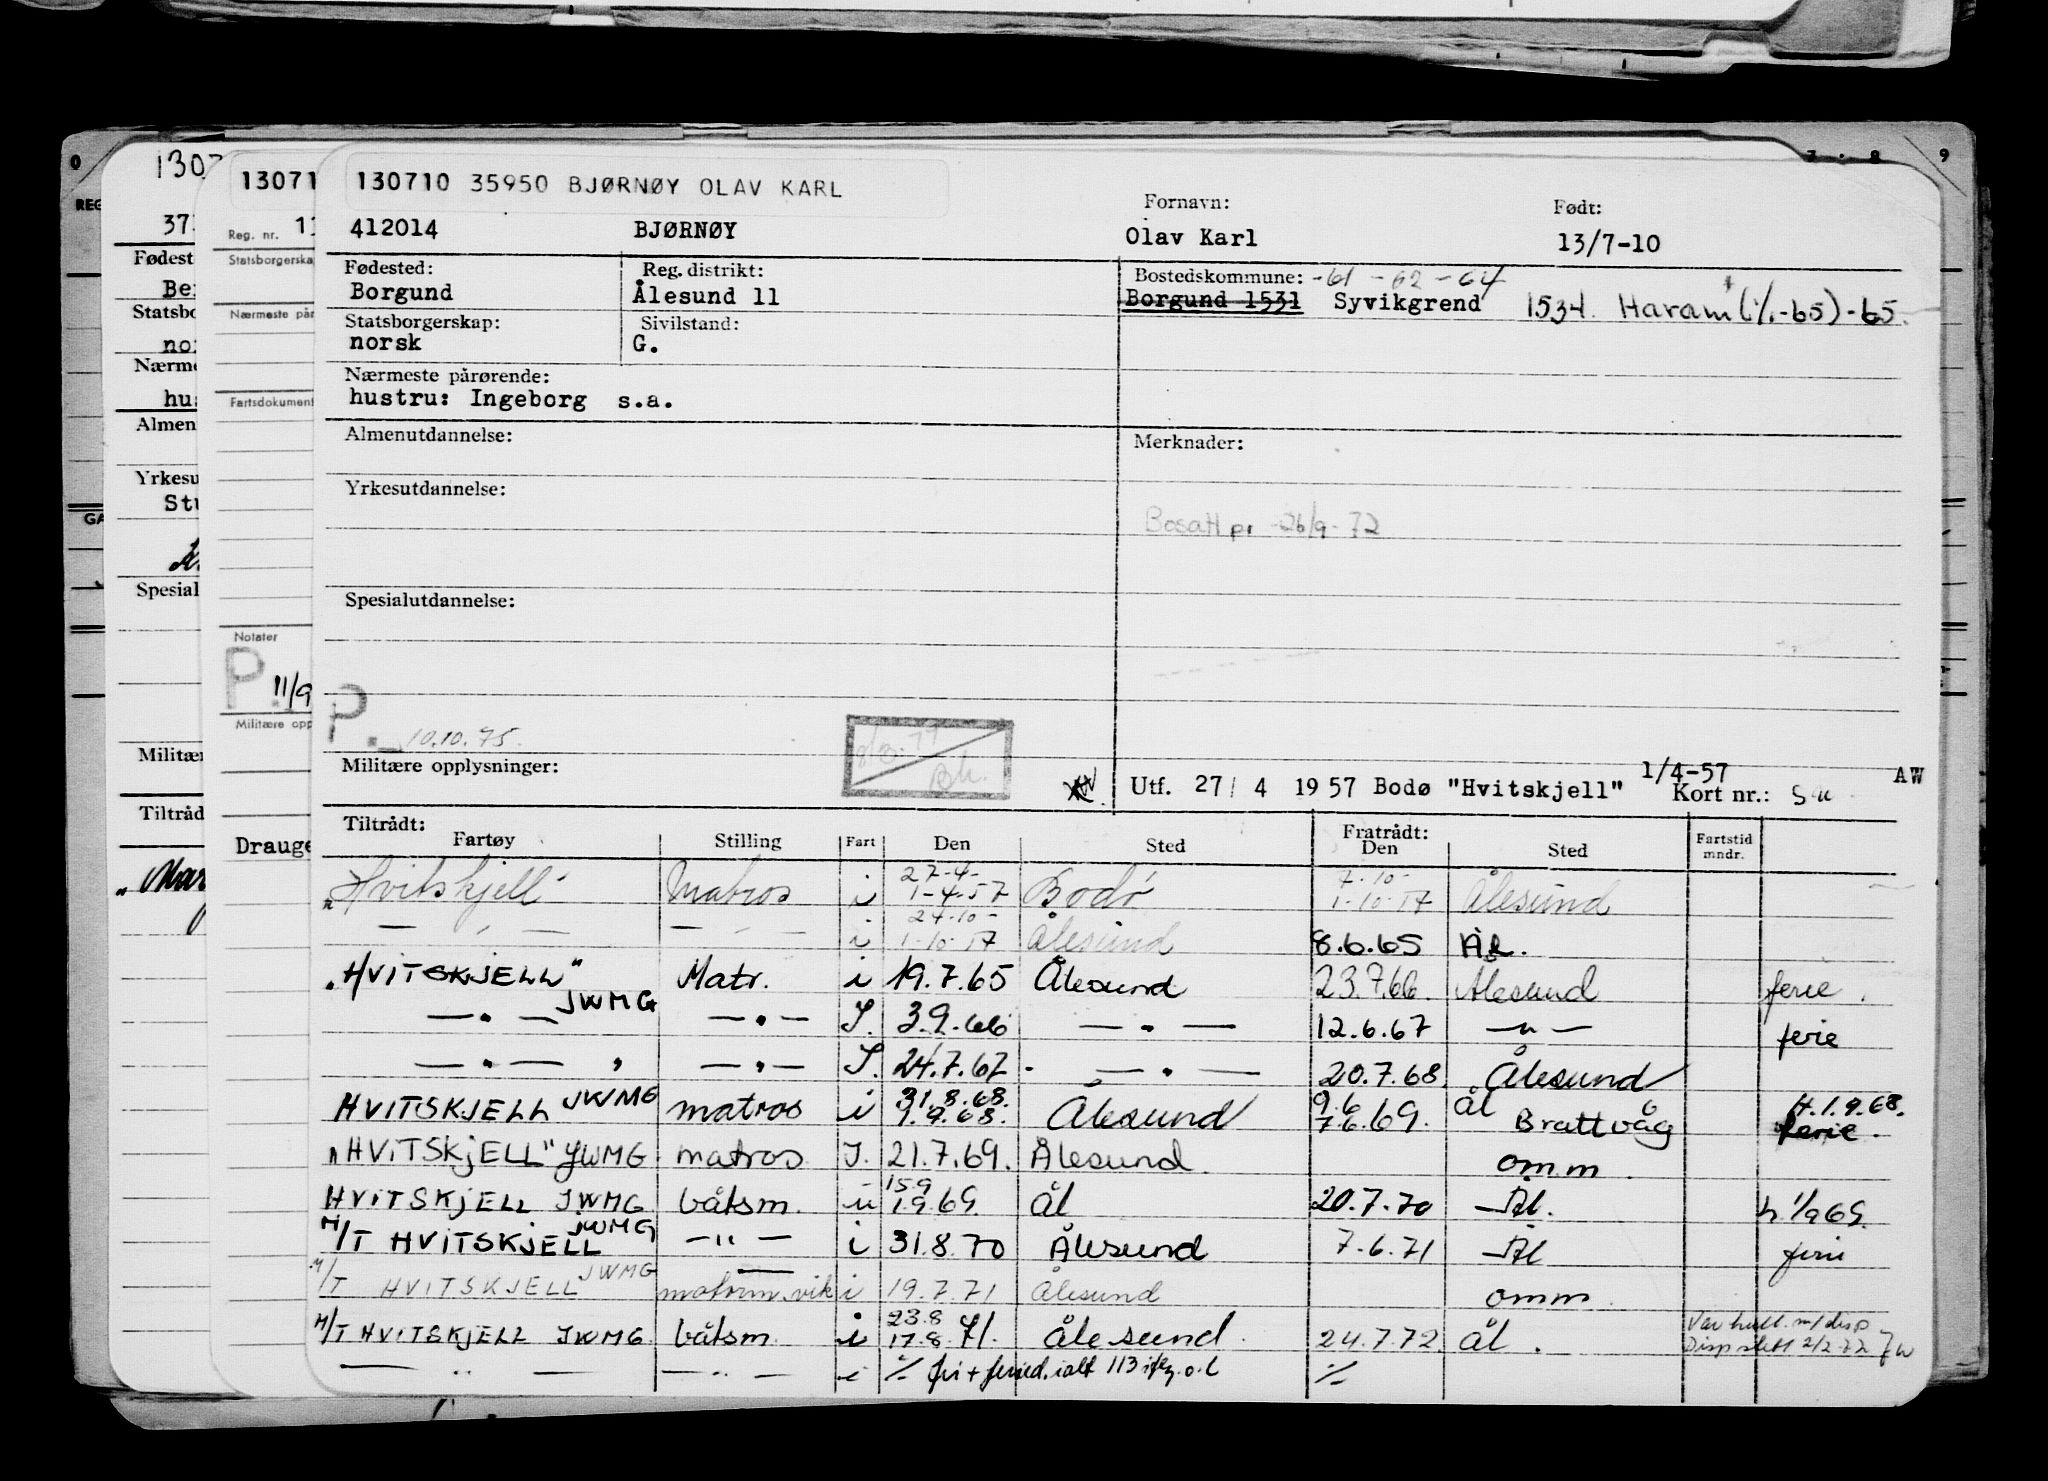 130710 35950 BJØRNØY OLAV KARL
412014 BJØRNØY
Fornavn: Olav Karl
Født: 13/7-10
Fødested: Borgund
Reg. distrikt: Ålesund 11
Bostedskommune: -61 -62 -64
Borgund 1531 Syvikgrend 1534 Haram (1/1-65)-65.
Statsborgerskap: norsk
Sivilstand: G.
Nærmeste pårørende:
hustru: Ingeborg s.a.
Almenutdannelse:
Merknader:
Yrkesutdannelse:
Bosatt pr 26/9-72
Spesialutdannelse:
P. 10.10.75.
Militære opplysninger:
Utf. 27/4 1957 Bodø "Hvitskjell" 1/4-57 Kort nr.: AW
Tiltrådt: Fratrådt:
Fartøy Stilling Fart Den Sted Den Sted Fartstid mndr.
"Hvitskjell" Matros i 27-4- 1-4-57 Bodø 7-10- 1-10-57 Ålesund
— " — — " — i 24-10- 1-10-57 Ålesund 8.6.65 Ål.
"HVITSKJELL" Matr. i 19.7.65 Ålesund 23.7.66. Ålesund ferie.
— " — JWMG — " — I. 3.9.66 — " — 12.6.67 — " — ferie
— " — " — " — I. 24.7.67 — " — 20.7.68. Ålesund
HVITSKJELL JWMG matros i 31.8.68. 1.9.68. Ålesund 9.6 7.6.69. Ål Brattvåg H.1.9.68. ferie.
"HVITSKJELL" JWMG matros I. 21.7.69. Ålesund. omm.
HVITSKJELL JWMG båtsm. u 15.9 1.9.69. Ål 20.7.70 Ål. h 1/9 69.
M/T HVITSKJELL JWMG — " — i 31.8.70 Ålesund 7.6.71 Ål ferie
M/T HVITSKJELL JWMG i 19.7.71 Ålesund omm.
M/T HVITSKJELL JWMG båtsm i 23.8 17.8.71. Ålesund. 24.7.72. Ål.
— " — — " — i ./. fri + feried. ialt 113 ./.
1307
13071
Reg. nr. 11
Statsborgerska
Nærmeste pår
Fartsdokument
Notater
P. 11/9
Militære opp
Drauge
373
Fødest
Ber
Statsbo
nor
Nærme
hus
Almen
Yrkesu
Stu
Spesial
Militær
Tiltråd
"Mar
REG
GA
0
7 8 9